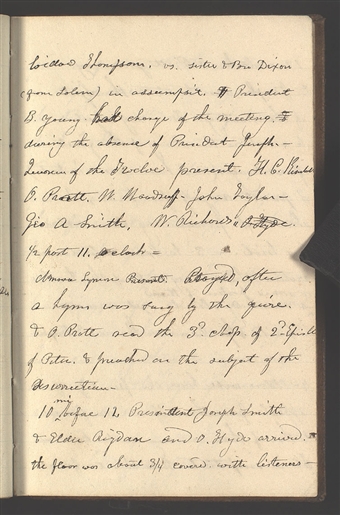 widow Thompson. vs. sister & Bro Dixon
(from Salem) in assumpsit. President
B. Young had charge of the meeting
during the absence of President Joseph-
Quorum of the Twelve present. H. C. Kimball
O. Pratt. W. Woodruff- John Taylor-
Geo A Smith, W. Richards, O Hyde.
1/2 past 11. o clock=
Amasa Lyman Present. Prayed, after
a hymn was sung by the quire.
& O. Pratt read the 3d chap of 2d Epistle
of Peter. & preached on the subject of the
resurrection-
10 min before 12 President Joseph Smith
& Elder Rigdon and O. Hyde arrived.
the floor was about 3/4 covered with listeners-